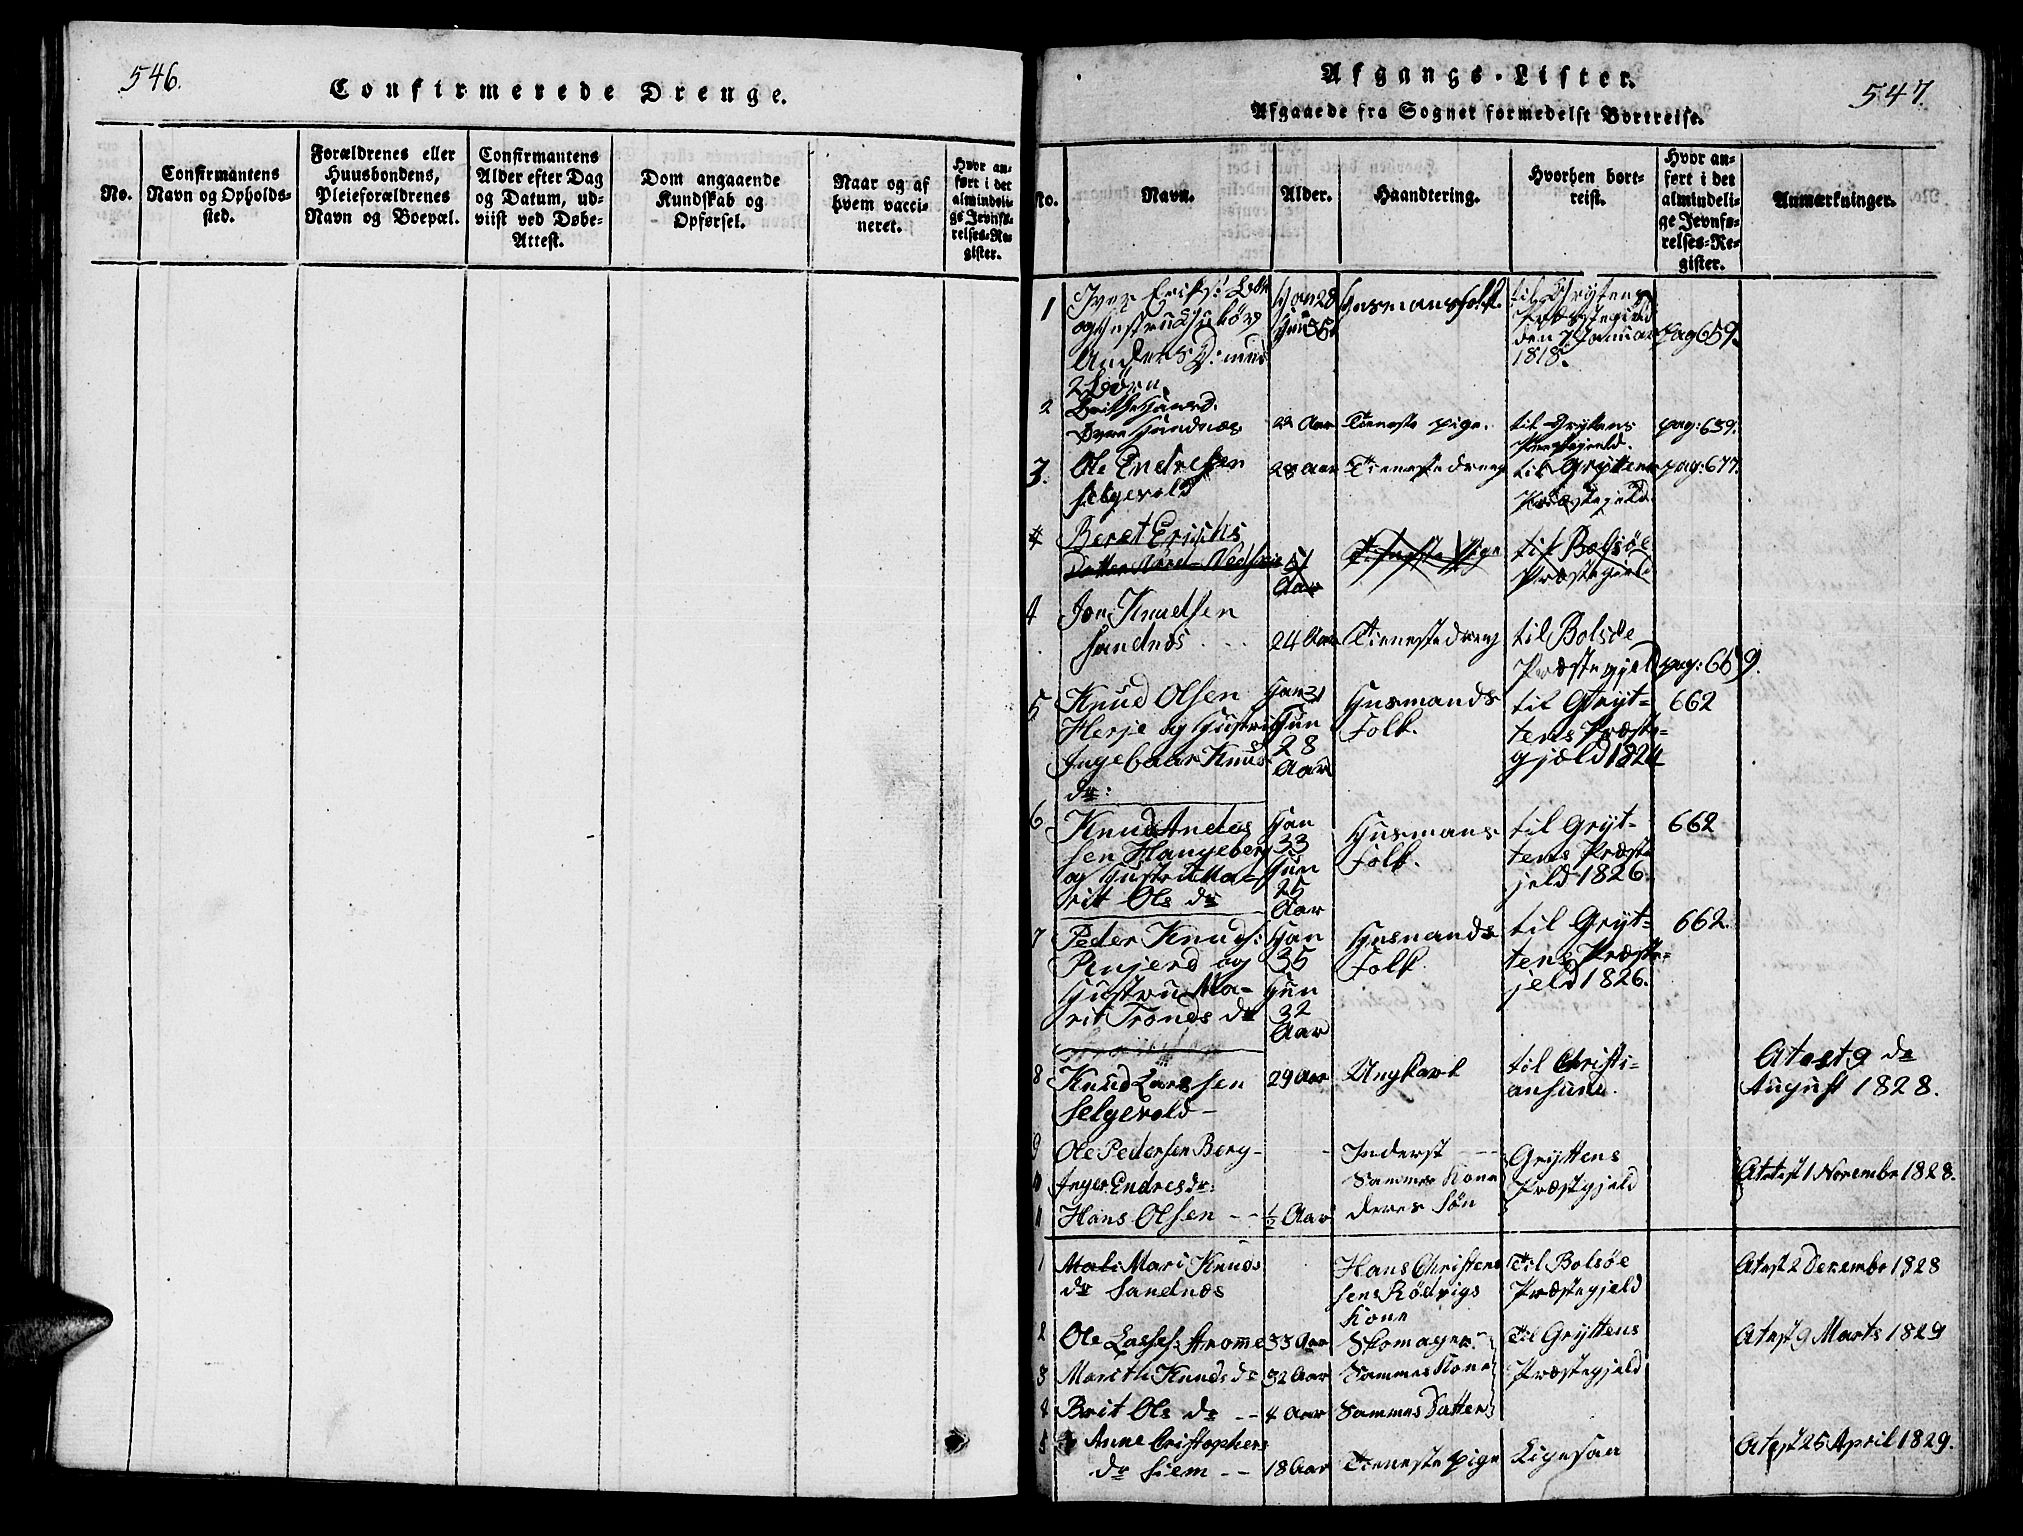 546.
Confirmerede Drenge.
No.
Confirmantens
Navn og Opholds-
sted.
Forældrenes eller
Huusbondens,
Pleieforældrenes
Navn og Boepæl.
Confirmantens
Alder efter Dag
og Datum, ud-
viist ved Døbe-
Attest.
Dom angaaende
Kundskab og
Opførsel.
Naar og af
hvem vacci-
neret.
Hvor an-
ført i det
almindeli-
ge Jevnfø-
relses-Re-
gister.
547.
Afgangs-Lister.
Afgaaede fra Sognet formedelst Bortreise.
No.
Navn.
Alder.
Haandtering.
Hvorhen bort-
reist.
Hvor an-
ført i det
almindeli-
ge Jevnfø-
relses-Re-
gister.
Anmærkninger.
1
Iver Eriks:
Anders D:
Husmansfolk
til Gryttens
Præstegield
den 7 Januar
1818.
pag 659.
2
22 Aar
Tieneste pige.
til Gryttens
Præstegield.
pag: 659.
3.
Ole Endresen
Selgevold
28 Aar
Tieneste dreng
til Gryttens
Præstegield.
pag: 677.
4
Beret Erichs
Datter
51
Aar
Tieneste Pige
til Bolsøe
Præstegield
4
Jon Knudsen
Sandnes
24 Aar
Tieneste dreng
til Bolsøe
Præstegjeld
pag: 659.
5
Knud Olsen
Herje og Hustru
Ingebaar Knuds
dr:
Han 31
Hun
28
Aar
Husmands
Folk.
til Gryt-
tens Præste-
gjæld 1824
662
6
Knud Anders
sen Hangeberg
og Hustru Ma-
rit Ols dr
Han
33
Hun
25
Aar
Husmans
Folk.
til Gryt-
tens Præste
jeld 1826.
662
7
Peder Knuds:
og
Hustru Ma-
rit Tronds dr
Han
35
Hun
32
Aar
Husmands
Folk.
til Gryt-
tens Præste-
jeld 1826.
662.
8
Knud Larssen
Selgevold -
29 Aar
Ungkarl
til Christi-
ansund.
Atest 9 de
August 1828.
9
Ole Pedersen Berg -
Inderst
Gryttens
Præstegjeld
Atest 1 Novembr 1828.
Inger Endres dr:
Sammes Kone
11
Hans Olsen
1/2 Aar
deres Søn
1
Mali Mari Knuds
dr Sandnes
Hans Christens
sens Rødvigs
Kone
Til Bolsøe
Præstegjeld
Atest 2 Decembr 1828
2
Ole Lasses: Stromme
33 Aar
Skomager
Til Gryttens
Præstegjeld
Atest 9 Marts 1829
3
Marith Knuds dr
32 Aar
Sammes Kone
4
Brit Ols dr
4 Aar
Sammes Datter
5
Anne Cristophers
dr Siem
18 Aar
Tieneste pige
Ligesaa
Atest 25 April 1829.